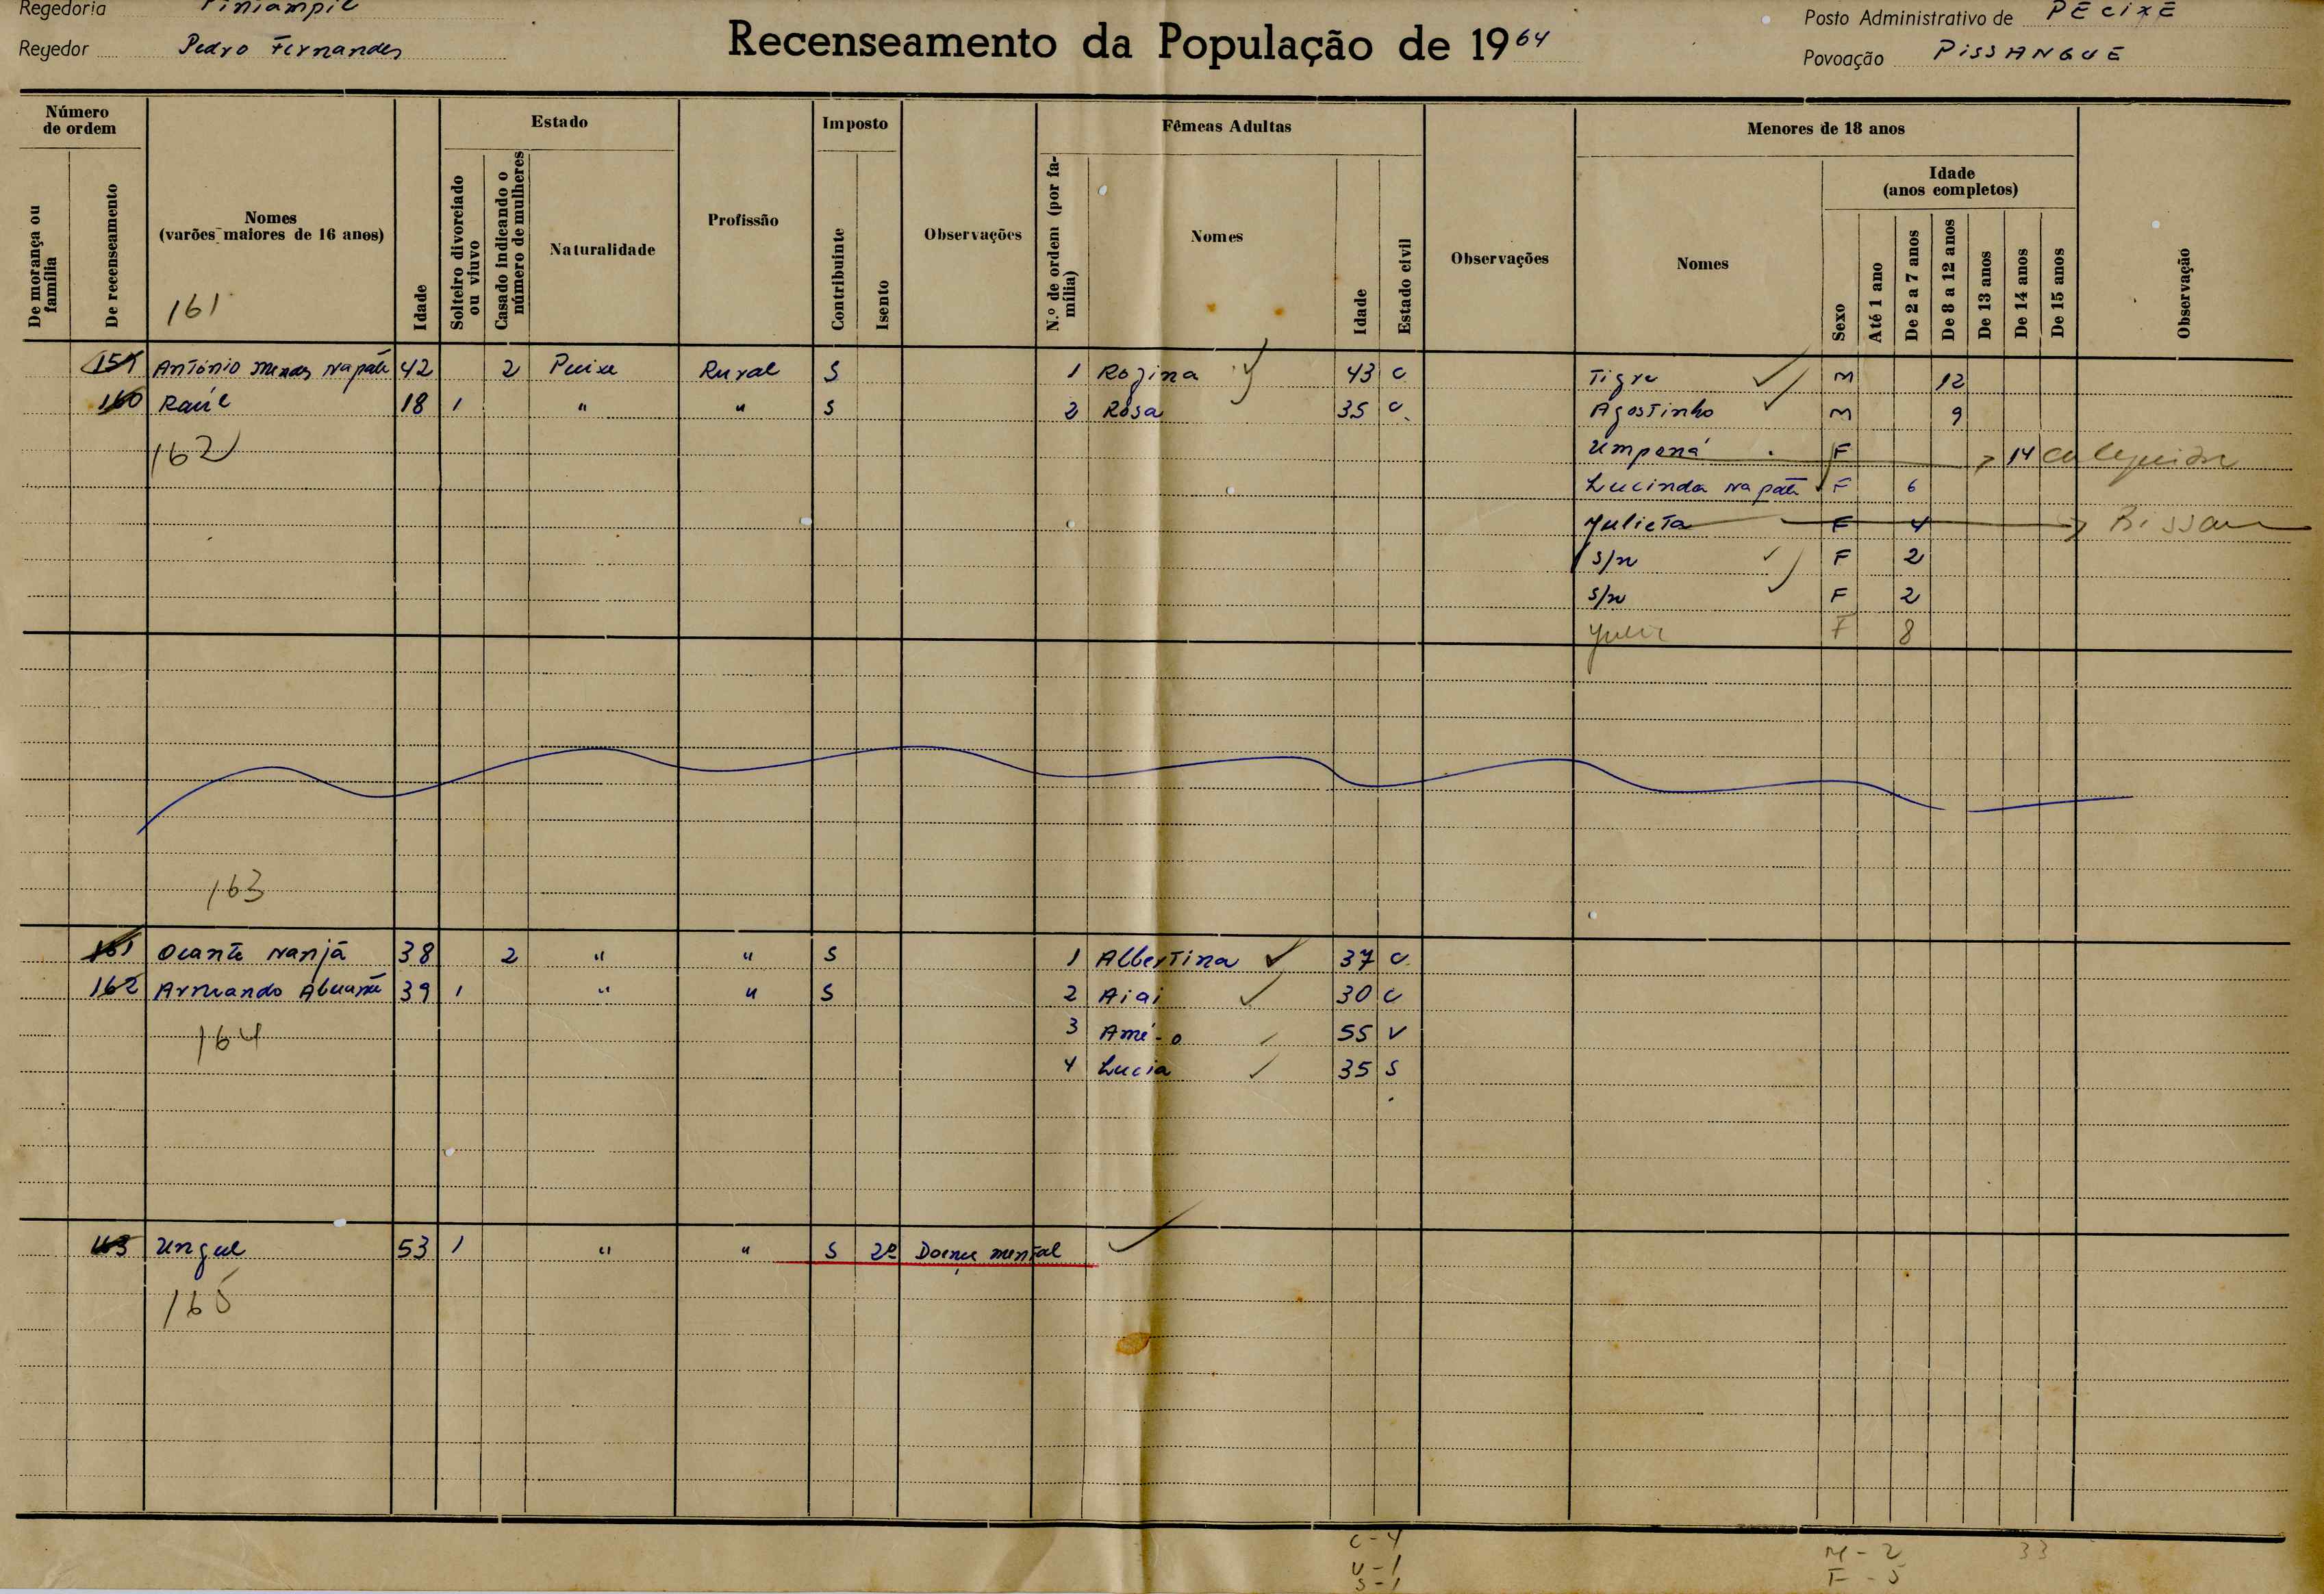 Regedoria Piniampil
Posto Administrativo de PECIXE
Regedor Pedro Fernandes
Recenseamento da População de 1964
Povoação PISSANGUE
Número de ordem
Estado
Imposto
Fêmeas Adultas
Menores de 18 anos
De morança ou família
De recenseamento
Nomes (varões maiores de 16 anos)
Idade
Solteiro divorciado ou viuvo
Casado indicando o número de mulheres
Naturalidade
Profissão
Contribuinte
Isento
Observações
N.º de ordem (por família)
Nomes
Idade
Estado civil
Observações
Nomes
Idade (anos completos)
Sexo
Até 1 ano
De 2 a 7 anos
De 8 a 12 anos
De 13 anos
De 14 anos
De 15 anos
Observação
161
António Mendes Napáti 42 2 Peixe Rural S 1 Rozina 43 C Tigre M 12
160 Raúl 18 1 " " S 2 Rosa 35 C. Agostinho M 9
162 Umpaná F 14
Lucinda Napáti F 6
Julieta F 4 Bissau
S/n F 2
S/n F 2
F 8
163
161 Ocante Nanjá 38 2 " " S 1 Albertina 37 C
162 Armando 39 1 " " S 2 Aiai 30 C
164 3 Amé-o 55 V
4 Lucia 35 S
163 Ungul 53 1 " " S 2º Doença mental
165
C-4
V-1
S-1
M-2
F-5
33